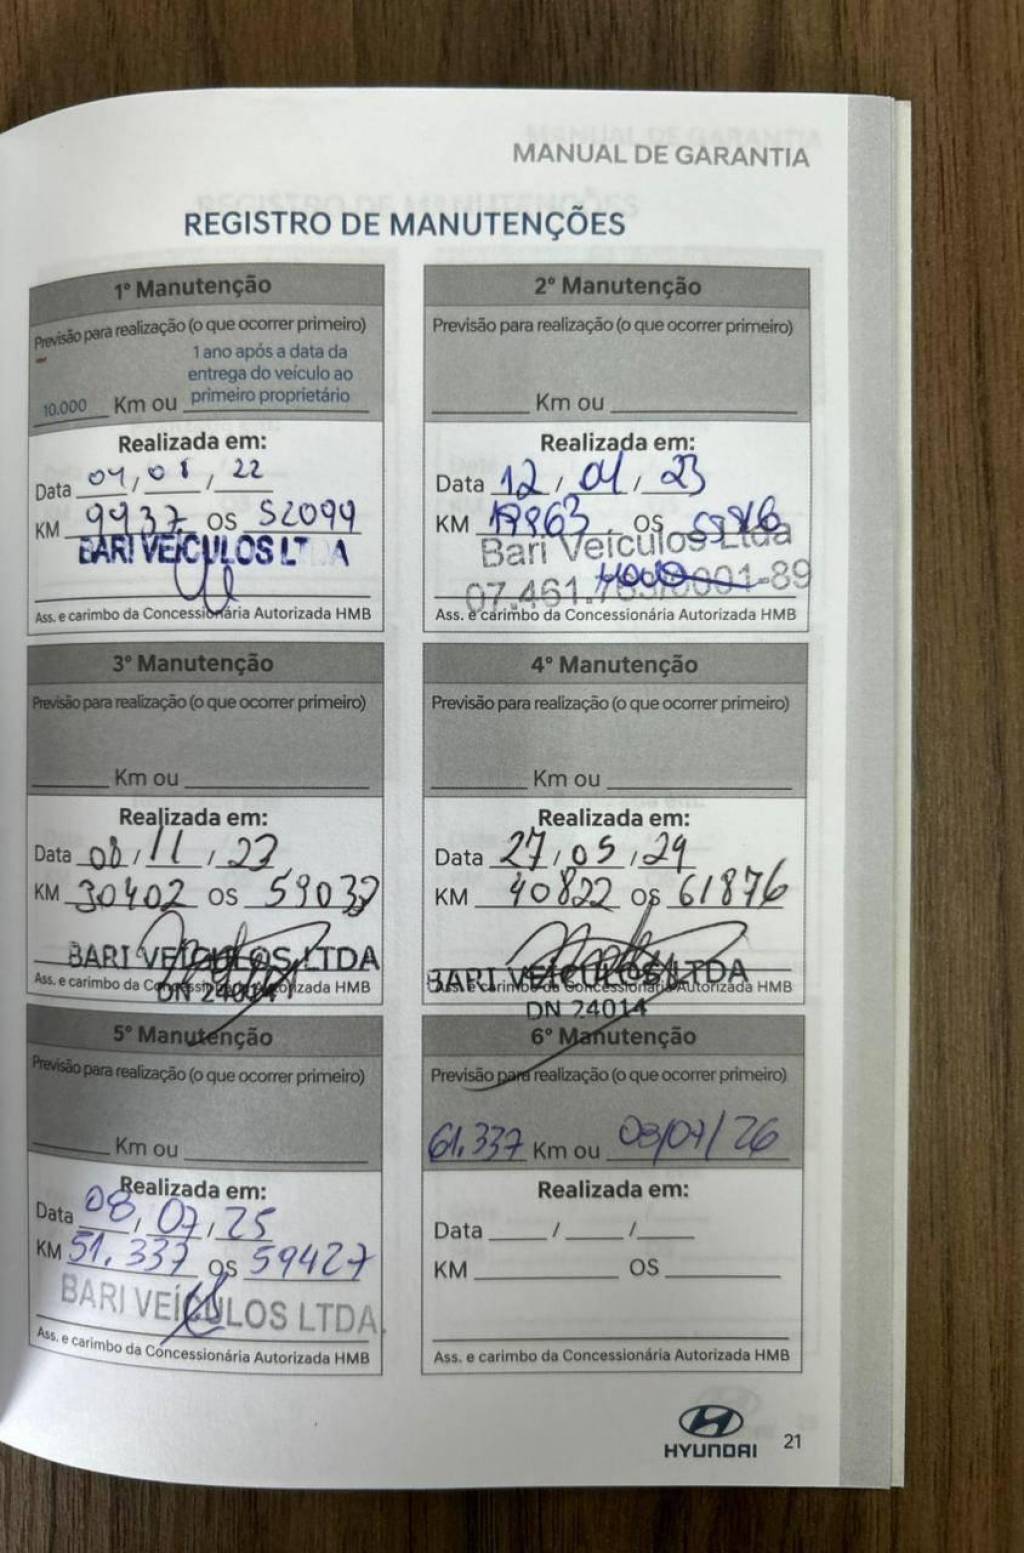 MANUAL DE GARANTIA
REGISTRO DE MANUTENÇÕES
1º Manutenção
Previsão para realização (o que ocorrer primeiro)
1 ano após a data da
entrega do veículo ao
10.000 Km ou primeiro proprietário
Realizada em:
Data 04/01/22
KM 9937 OS 52099
BARI VEÍCULOS LTDA
Ass. e carimbo da Concessionária Autorizada HMB
2º Manutenção
Previsão para realização (o que ocorrer primeiro)
Km ou
Realizada em:
Data 12/04/23
KM 19863 OS
Bari Veículos Ltda
07.461. 0001-89
Ass. e carimbo da Concessionária Autorizada HMB
3º Manutenção
Previsão para realização (o que ocorrer primeiro)
Km ou
Realizada em:
Data 08/11/23
KM 30402 OS 59032
BARI VEÍCULOS LTDA
Ass. e carimbo da Concessionária Autorizada HMB
DN 24014
4º Manutenção
Previsão para realização (o que ocorrer primeiro)
Km ou
Realizada em:
Data 27/05/24
KM 40822 OS 61876
BARI VEÍCULOS LTDA
Ass. e carimbo da Concessionária Autorizada HMB
DN 24014
5º Manutenção
Previsão para realização (o que ocorrer primeiro)
Km ou
Realizada em:
Data 08/07/25
KM 51.337 OS 59427
BARI VEÍCULOS LTDA.
Ass. e carimbo da Concessionária Autorizada HMB
6º Manutenção
Previsão para realização (o que ocorrer primeiro)
61.337 Km ou 08/07/26
Realizada em:
Data / /
KM OS
Ass. e carimbo da Concessionária Autorizada HMB
HYUNDAI
21